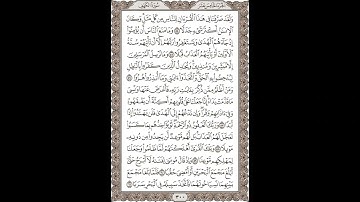 الجزء الخامس عشر
سورة الكهف
وَلَقَدْ صَرَّفْنَا فِي هَٰذَا ٱلْقُرْءَانِ لِلنَّاسِ مِن كُلِّ مَثَلٍ وَكَانَ
ٱلْإِنسَٰنُ أَكْثَرَ شَىْءٍ جَدَلًا ٥٤ وَمَا مَنَعَ ٱلنَّاسَ أَن يُؤْمِنُوٓا۟
إِذْ جَآءَهُمُ ٱلْهُدَىٰ وَيَسْتَغْفِرُوا۟ رَبَّهُمْ إِلَّآ أَن تَأْتِيَهُمْ سُنَّةُ
ٱلْأَوَّلِينَ أَوْ يَأْتِيَهُمُ ٱلْعَذَابُ قُبُلًا ٥٥ وَمَا نُرْسِلُ ٱلْمُرْسَلِينَ
إِلَّا مُبَشِّرِينَ وَمُنذِرِينَ وَيُجَٰدِلُ ٱلَّذِينَ كَفَرُوا۟ بِٱلْبَٰطِلِ
لِيُدْحِضُوا۟ بِهِ ٱلْحَقَّ وَٱتَّخَذُوٓا۟ ءَايَٰتِى وَمَآ أُنذِرُوا۟ هُزُوًا ٥٦
وَمَنْ أَظْلَمُ مِمَّن ذُكِّرَ بِـَٔايَٰتِ رَبِّهِ فَأَعْرَضَ عَنْهَا وَنَسِىَ
مَا قَدَّمَتْ يَدَاهُ إِنَّا جَعَلْنَا عَلَىٰ قُلُوبِهِمْ أَكِنَّةً أَن يَفْقَهُوهُ
وَفِىٓ ءَاذَانِهِمْ وَقْرًا وَإِن تَدْعُهُمْ إِلَى ٱلْهُدَىٰ فَلَن يَهْتَدُوٓا۟ إِذًا
أَبَدًا ٥٧ وَرَبُّكَ ٱلْغَفُورُ ذُو ٱلرَّحْمَةِ لَوْ يُؤَاخِذُهُم بِمَا كَسَبُوا۟
لَعَجَّلَ لَهُمُ ٱلْعَذَابَ بَل لَّهُم مَّوْعِدٌ لَّن يَجِدُوا۟ مِن دُونِهِ
مَوْئِلًا ٥٨ وَتِلْكَ ٱلْقُرَىٰٓ أَهْلَكْنَٰهُمْ لَمَّا ظَلَمُوا۟ وَجَعَلْنَا
لِمَهْلِكِهِم مَّوْعِدًا ٥٩ وَإِذْ قَالَ مُوسَىٰ لِفَتَىٰهُ لَآ أَبْرَحُ حَتَّىٰٓ
أَبْلُغَ مَجْمَعَ ٱلْبَحْرَيْنِ أَوْ أَمْضِىَ حُقُبًا ٦٠ فَلَمَّا بَلَغَا مَجْمَعَ
بَيْنِهِمَا نَسِيَا حُوتَهُمَا فَٱتَّخَذَ سَبِيلَهُ فِى ٱلْبَحْرِ سَرَبًا ٦١
٣٠٠